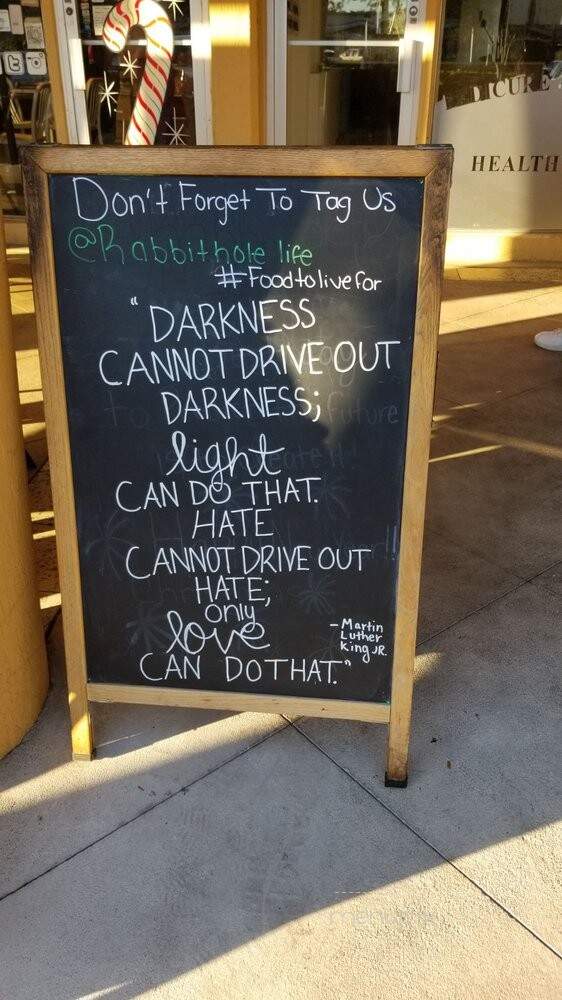 CURE
HEALTH
Don't Forget To Tag Us
@Rabbithole life
#Foodtolivefor
"DARKNESS
CANNOT DRIVE OUT
DARKNESS;
light
CAN DO THAT.
HATE
CANNOT DRIVE OUT
HATE;
only
love
CAN DO THAT."
- Martin
Luther
King JR.